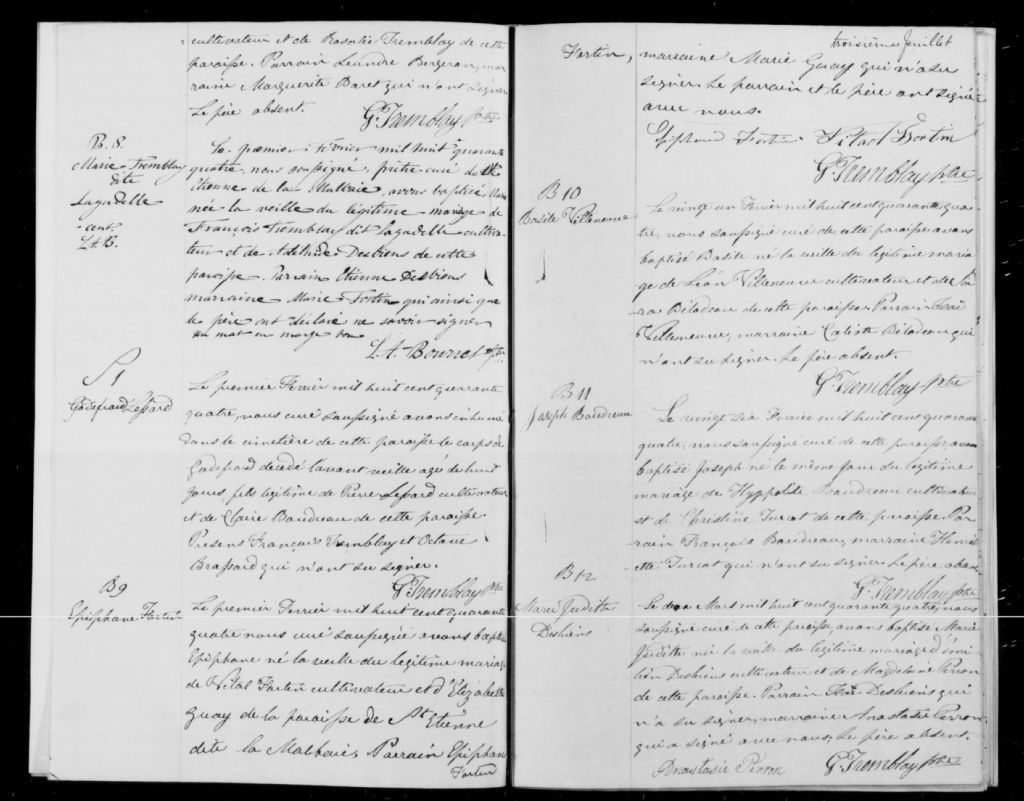 cultivateur et de Rosalie Tremblay de cette
paroisse. Parrain Leandre Bergeron, mar
raine Marguerite Baret qui n'ont signer.
Le père absent.
G. Tremblay Ptre
B. 8.
Marie Tremblay
dite
Lagadelle
L.A.B.
Le premier Février mil huit quarante
quatre, nous soussigné, prêtre curé de St
Etienne de la Malbaie, avons baptisé Marie
née la veille du légitime mariage de
François Tremblay dit Lagadelle cultiva
teur et de Adelaide Desbiens de cette
paroisse. Parrain Etienne Desbiens
marraine Marie Fortin qui ainsi que
le père ont déclaré ne savoir signer
un mot en marge bon
L.A. Bourret Ptre
S 1
Godefroid Lessard
Le premier Fevrier mil huit cent quarante
quatre, nous curé soussigné avons inhumé
dans le cimetière de cette paroisse le corps de
Godefroid decedé l'avant veille agé de huit
jours, fils légitime de Pierre Lessard cultivateur
et de Claire Boudreau de cette paroisse.
Presens François Tremblay et Octave
Brassard qui n'ont su signer.
G. Tremblay Ptre
B 9
Epiphane Fortin
Le premier Fevrier mil huit cent quarante
quatre nous curé soussigné avons baptisé
Epiphane né la veille du légitime mariage
de Vital Fortin cultivateur et d'Elizabeth
Guay de la paroisse de St Etienne
dite la Malbaie, Parrain Epiphane
Fortin
troisième feuillet
Fortin, marraine Marie Guay qui n'a su
signer. Le parrain et le père ont signé
avec nous.
Fortin Vital Fortin
G. Tremblay Ptre
B 10
Basile Villeneuve
Le vingt un Fevrier mil huit cent quarante qua
tre, nous soussigné curé de cette paroisse avons
baptisé Basile né la veille du légitime maria
ge de Léon Villeneuve cultivateur et de Sa
ra Biladeau de cette paroisse. Parrain Isaï
Villeneuve, marraine Caliste Biladeau qui
n'ont su signer. Le père absent.
G. Tremblay Ptre
B 11
Joseph Boudreau
Le vingt six Fevrier mil huit cent quarante
quatre, nous soussigné curé de cette paroisse, avons
baptisé Joseph né le même jour du légitime
mariage de Hyppolite Boudreau cultivateur
et de Christine Turcot de cette paroisse. Par
rain François Boudreau, marraine Henri
ette Turcot qui n'ont su signer. Le père absent
G. Tremblay Ptre
B 12
Marie Judith
Desbiens
Le Mars mil huit cent quarante quatre, nous
soussigné curé de cette paroisse, avons baptisé Marie
Judith née la veille du légitime mariage d'Emi
lien Desbiens cultivateur et de Magdeleine Perron
de cette paroisse. Parrain Isaï Desbiens qui
n'a su signer, marraine Anastasie Perron
qui a signé avec nous. Le père absent.
Anastasie Perron G. Tremblay Ptre